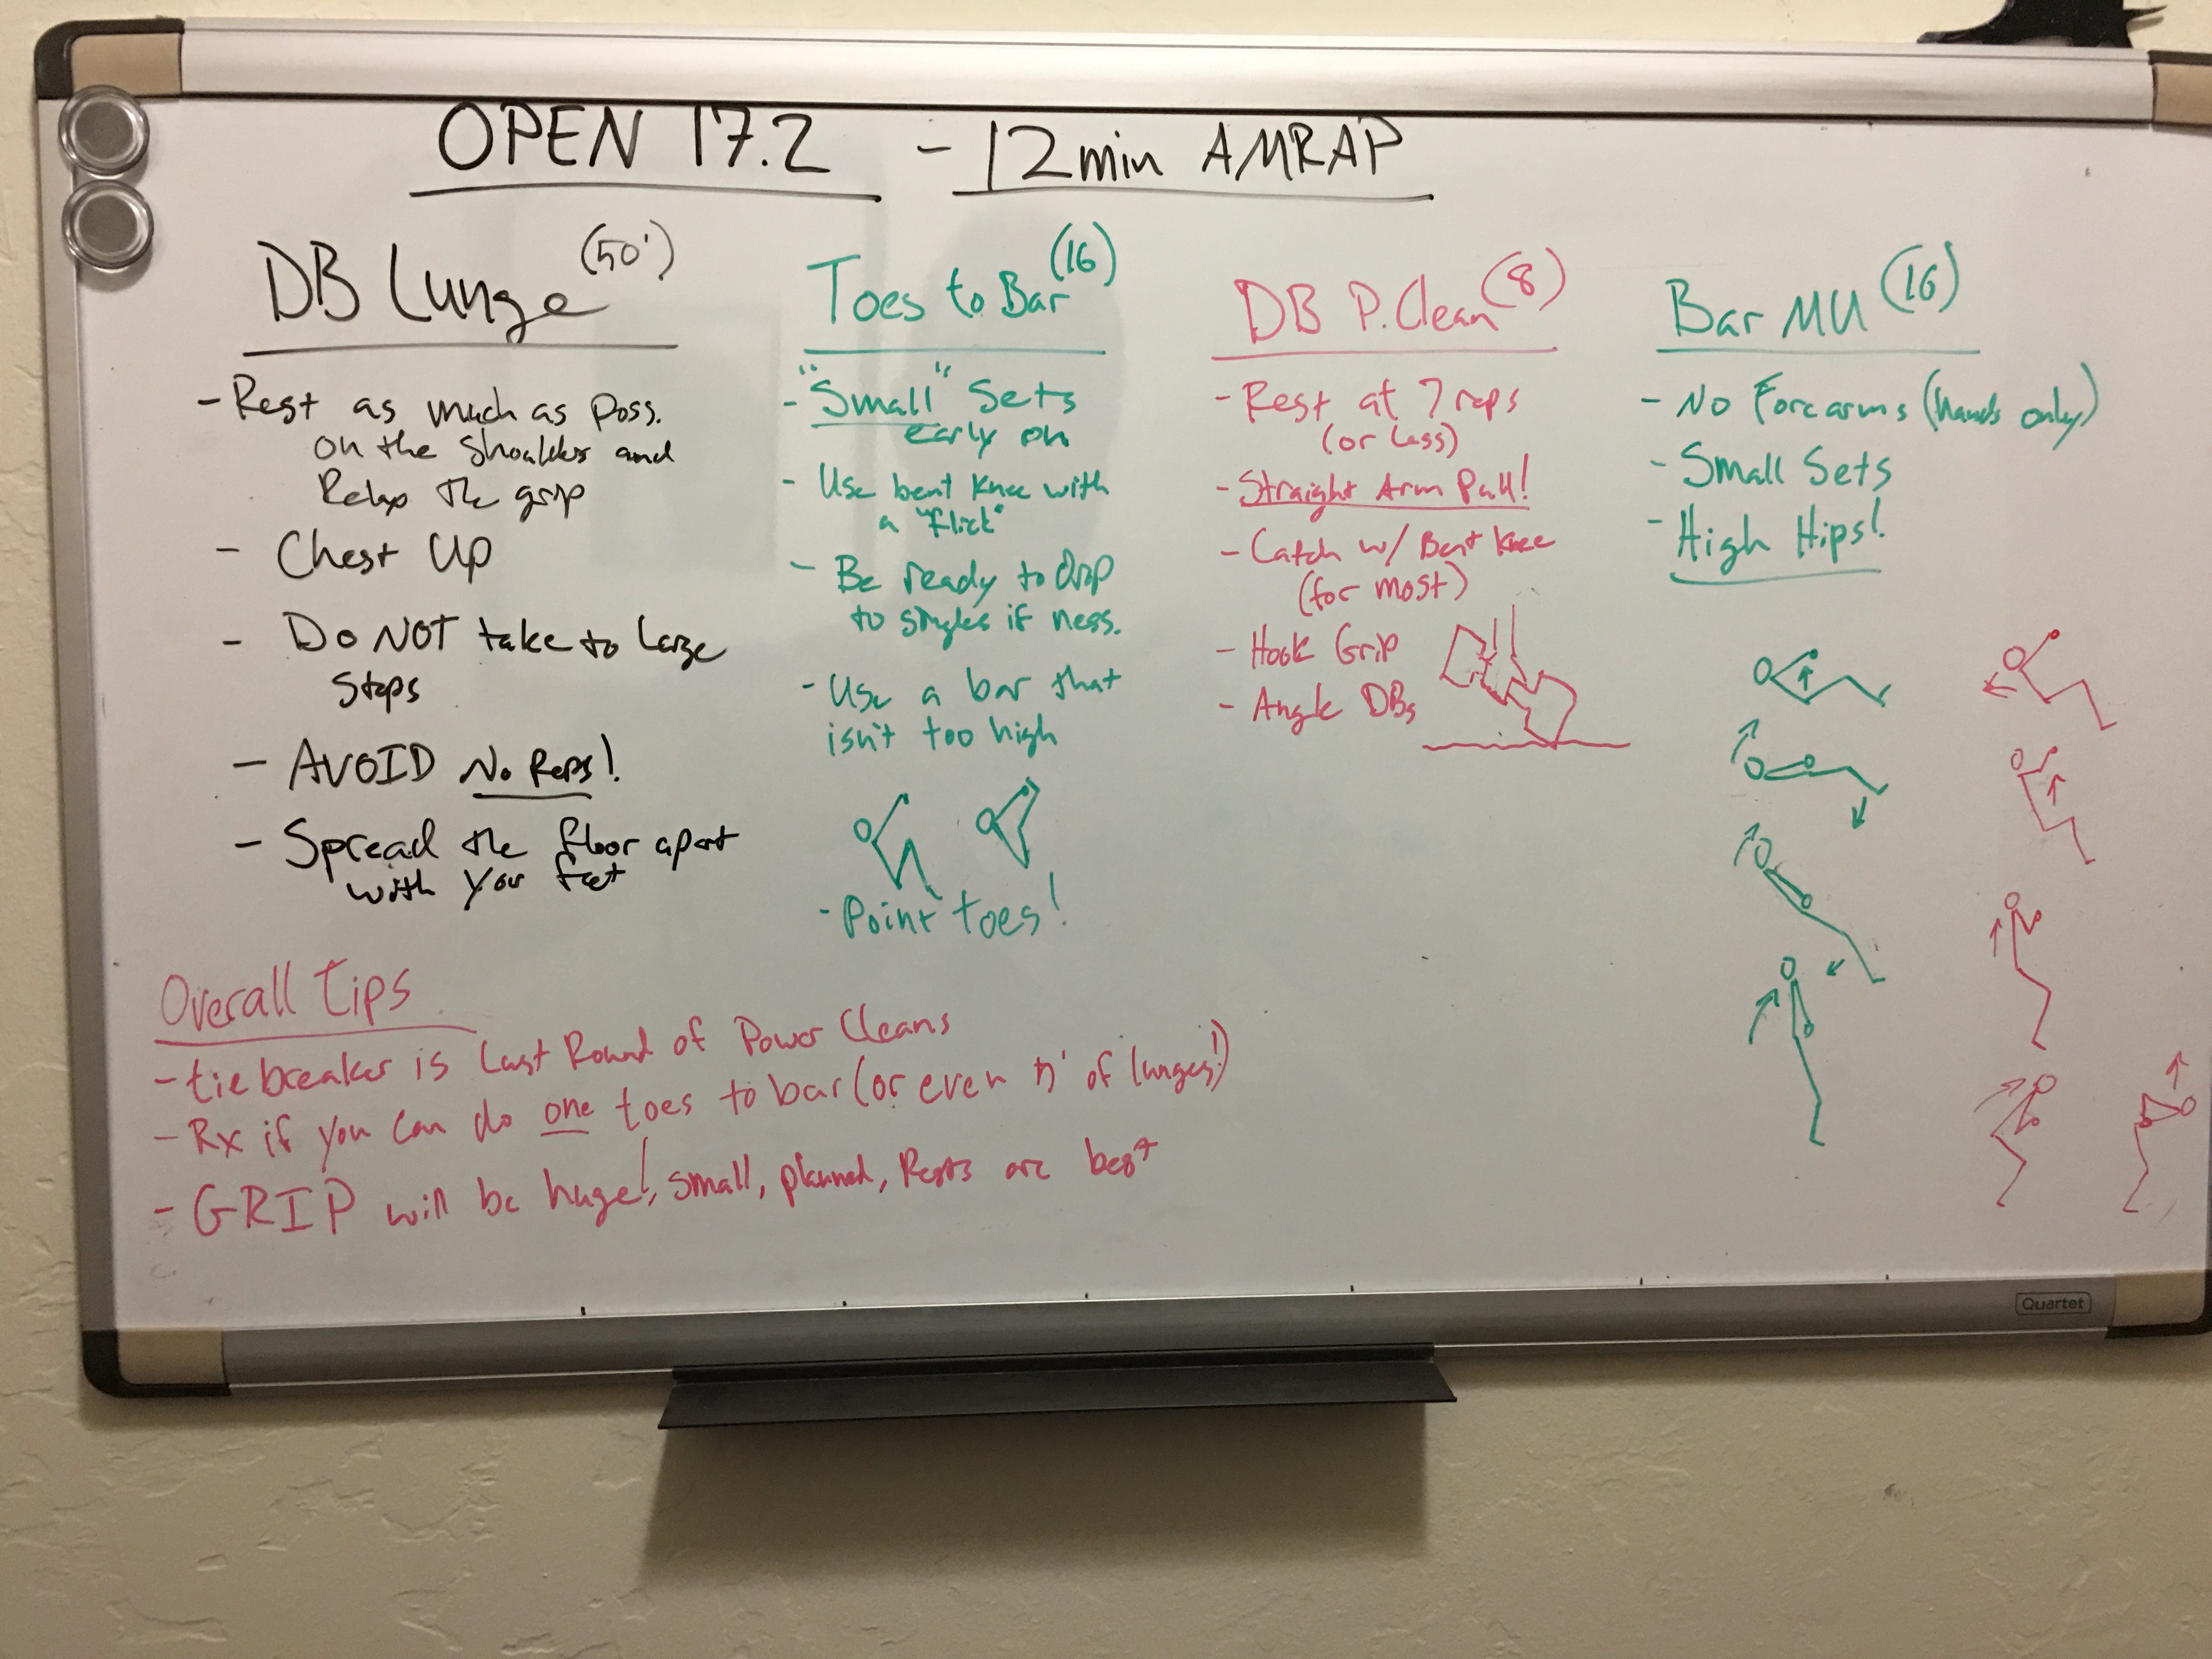 OPEN 17.2 - 12min AMRAP
DB Lunge (50')
- Rest as much as Poss.
on the shoulder and
Relax the grip
- Chest Up
- Do NOT take to Large
Steps
- AVOID No Reps!
- Spread the floor apart
with your feet
Toes to Bar (16)
- "Small" Sets
early on
- Use bent knee with
a "flick"
- Be ready to drop
to singles if ness.
- Use a bar that
isn't too high
- Point toes!
DB P. Clean (8)
- Rest at 7 reps
(or less)
- Straight Arm Pull!
- Catch w/ Bent Knee
(for most)
- Hook Grip
- Angle DBs
Bar MU (16)
- No Forearms (hands only)
- Small Sets
- High Hips!
Overall Tips
- tie breaker is Last Round of Power Cleans
- Rx if you can do one toes to bar (or even of lunges!)
- GRIP will be huge!, small, planned, Rests are best
Quartet